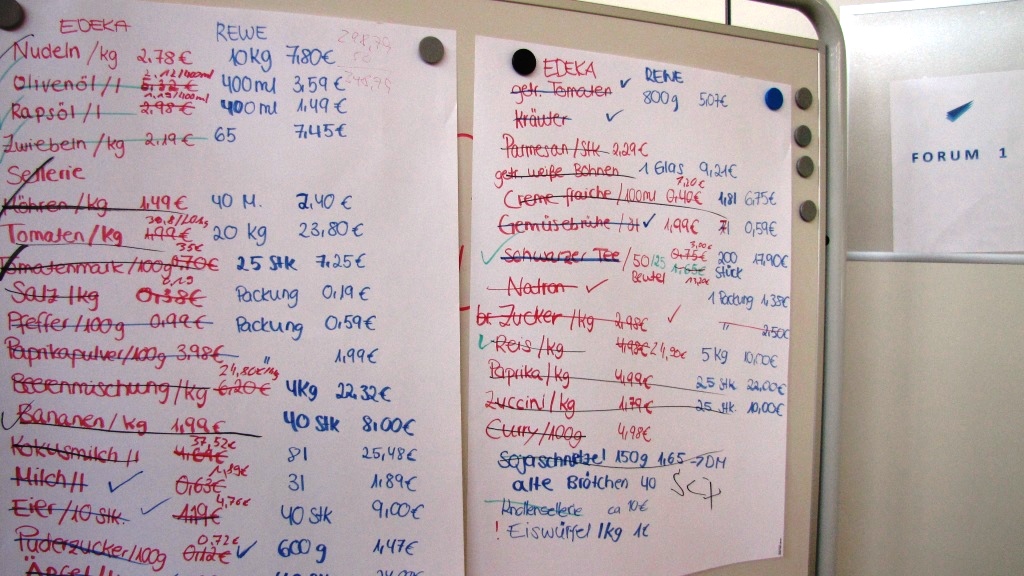 EDEKA REWE
Nudeln /kg 2.78€ 10kg 7,80€
Olivenöl /l 400ml 3,59€
Rapsöl /l 2.98€ 400ml 1.49€
Zwiebeln /kg 2,19€ 65 7,45€
Sellerie
Möhren /kg 1,49€ 40 M. 2,40€
Tomaten /kg 1,99€ 20 kg 23,80€
Tomatenmark /100g 0,70€ 35€ 25 Stk 7,25€
Salz /kg 0,38€ 0,19 Packung 0,19€
Pfeffer /100g 0,99€ Packung 0,59€
Paprikapulver /100g 3,98€ " 1,99€
Beerenmischung /kg 6,20€ 24,80€ 4kg 22,32€
Bananen /kg 1,99€ 40 Stk 8,00€
Kokosmilch /l 4,64€ 37,52€ 8l 25,48€
Milch /l 0,63€ 1,89€ 3l 1,89€
Eier /10 Stk. 1,19€ 4,76€ 40 Stk 9,00€
Puderzucker /100g 0,12€ 0,72€ 600g 1,47€
Äpfel /
EDEKA REWE
getr. Tomaten 800g 5,07€
Kräuter
Parmesan /Stk 2,29€
getr. weiße Bohnen 1 Glas 9,21€
Creme fraiche /100ml 0,40€ 7,20€ 1,8l 6,75€
Gemüsebrühe /3l 1,99€ 7l 0,59€
Schwarzer Tee /50 /25 Beutel 0,75€ 3,00€ 1,65€ 200 Stück 17,90€
Natron 1 Packung 1,35€
br. Zucker /kg 2,95€ " 2,50€
Reis /kg 4,98€ 24,90€ 5kg 10,00€
Paprika /kg 4,99€ 25 Stk 22,00€
Zuccini /kg 1,79€ 25 Stk. 10,00€
Curry /100g 4,98€
Sojaschnetzel 150g 1,65 → DM
alte Brötchen 40
Knollensellerie ca 10€
! Eiswürfel 1kg 1€
FORUM 1